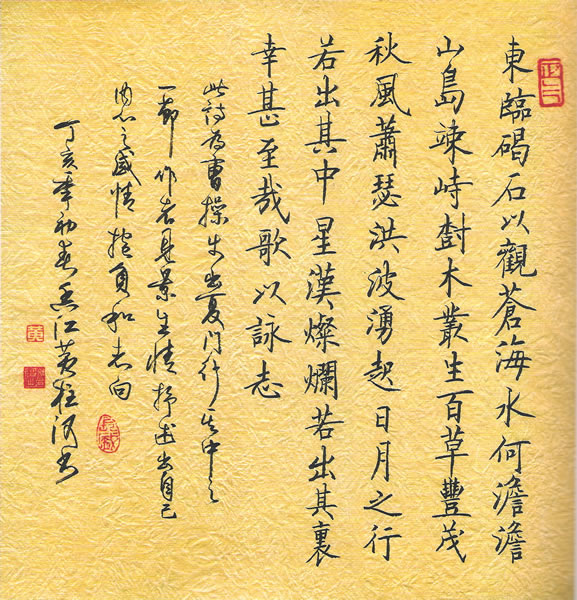 東臨碣石以觀蒼海水何澹澹
山島竦峙樹木叢生百草豐茂
秋風蕭瑟洪波湧起日月之行
若出其中星漢燦爛若出其裏
幸甚至哉歌以詠志
此詩為曹操步出夏門行其中之
一節作者見景生情抒述出自己
內心之感情抱負和志向
丁亥年初春香江黃河書